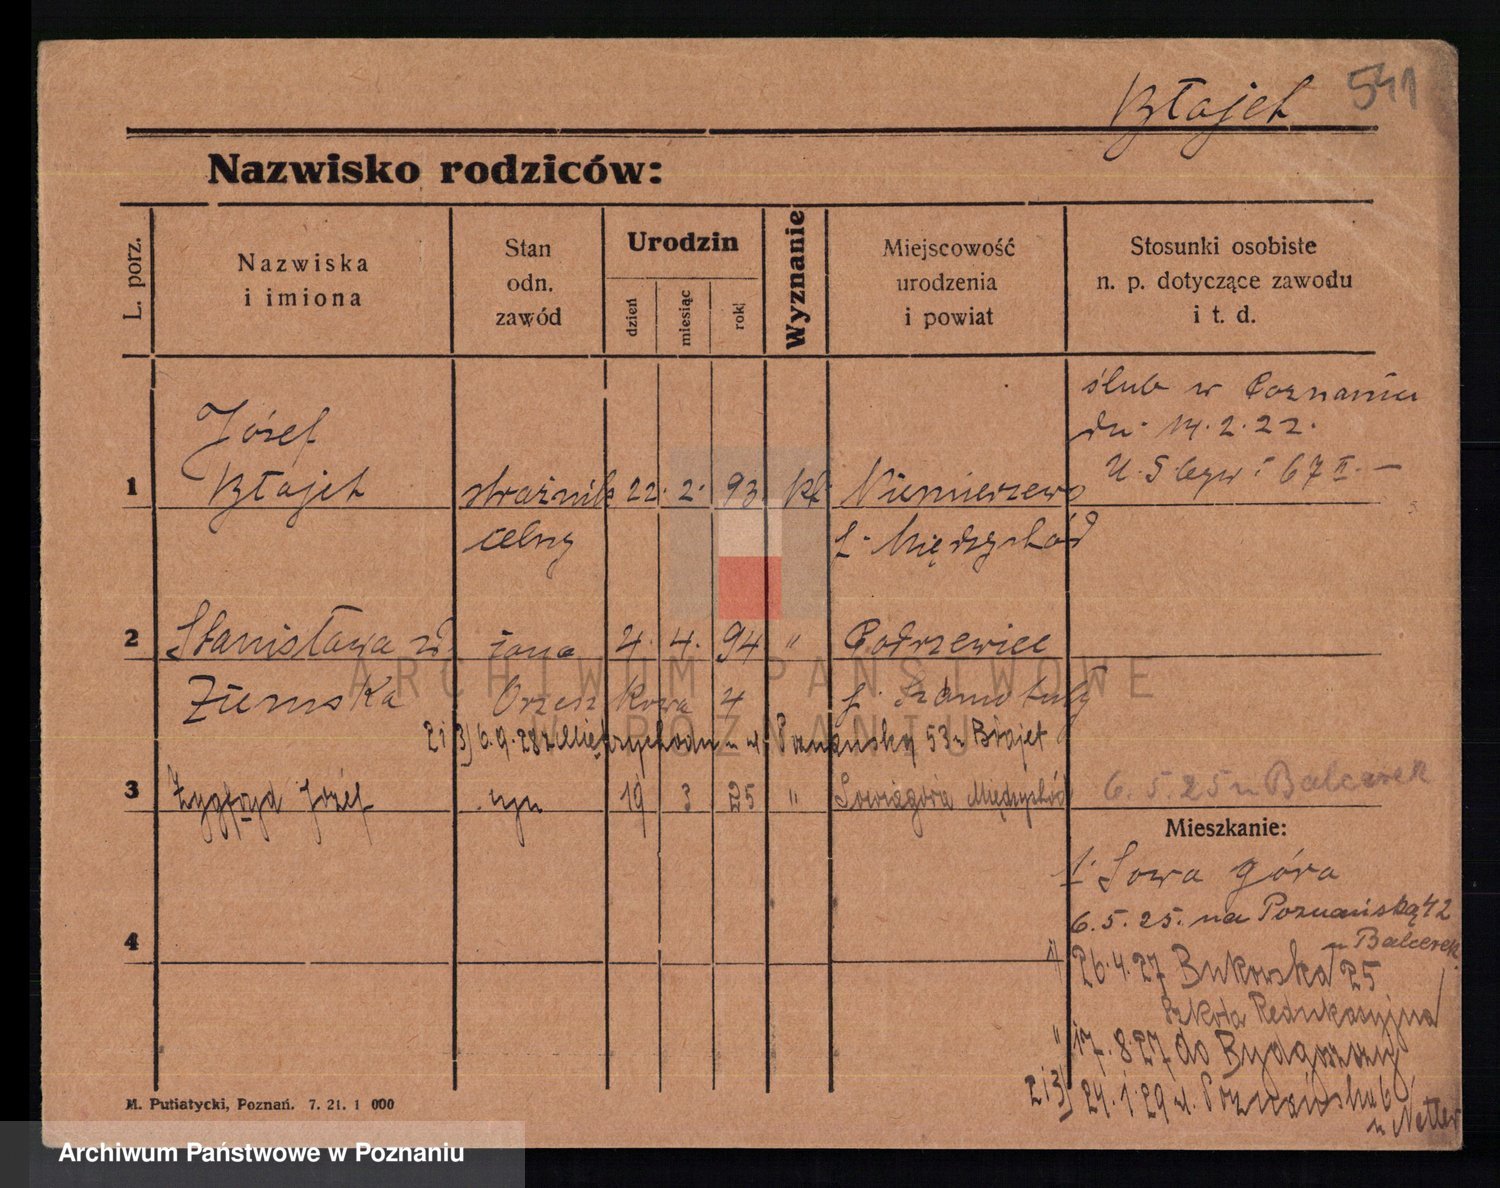 541
Błajet
Nazwisko rodziców:
L. porz.
Nazwiska
i imiona
Stan
odn.
zawód
Urodzin
dzień
miesiąc
rok
Wyznanie
Miejscowość
urodzenia
i powiat
Stosunki osobiste
n. p. dotyczące zawodu
i t. d.
ślub w Poznaniu
dn. 14.2.22.
U. S. 67 II. —
Józef
1 Błajet strażnik 22. 2. 93. kt. Niemierzewo
celny p. Międzychód
2 Stanisława zd żona 4. 4. 94 " Podrzewice
Ziemska Orzeszkowa 4 p. Szamotuły
2 i 3) 6.9.28 z Międzychodu n ul. Poznańską 53 u Błajet
3 Zygfryd Józef syn 19 3 25 " Sowiagóra Międzychód 6.5.25 u Balcerek
Mieszkanie:
p. Sowa góra
6.5.25. na Poznańską 42
u Balcerek
1) 26.4.27 Bukowska 25
Szkoła Redukacyjna
" 17.8.27 do Bydgoszczy
2 i 3) 24.1.29 ul. Poznańska 6
u Netter
4
M. Putiatycki, Poznań. 7. 21. 1 000
ARCHIWUM PAŃSTWOWE
W POZNANIU
Archiwum Państwowe w Poznaniu